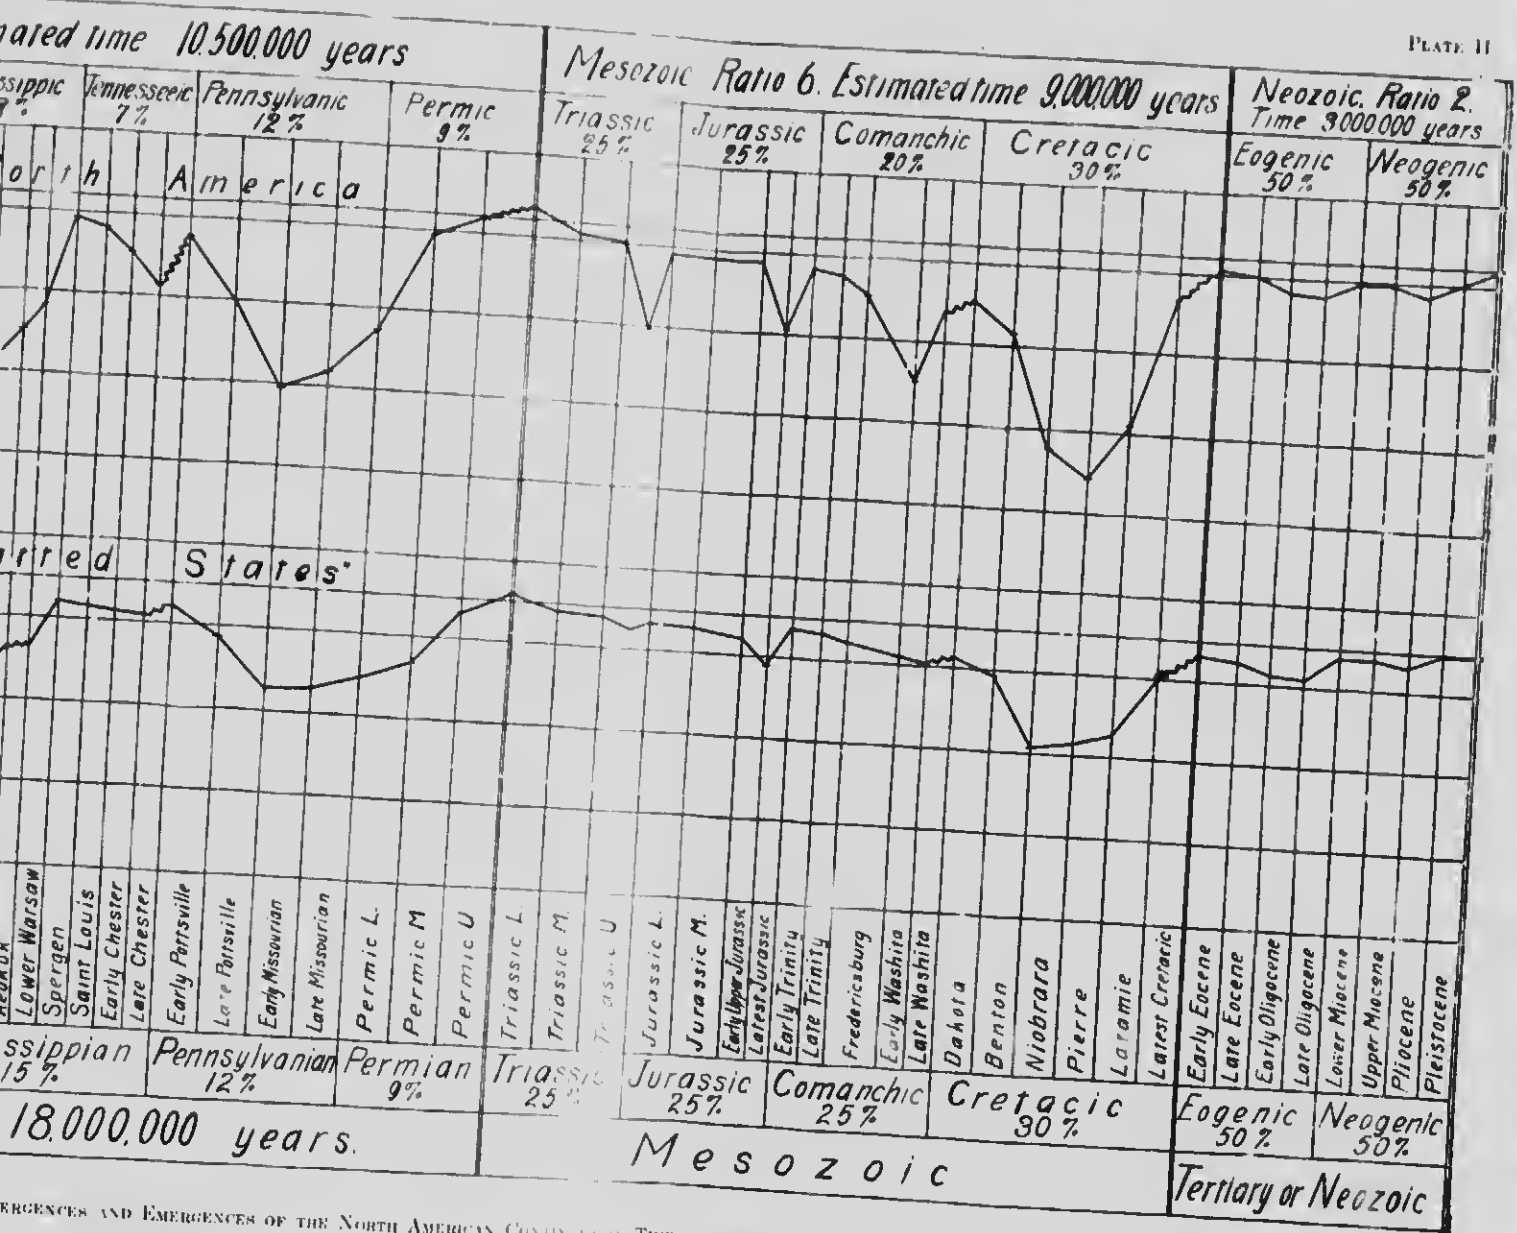 PLATE II
time 10.500.000 years
Mesozoic Ratio 6. Estimated time 9,000,000 years
Neozoic. Ratio 2.
Time 3000000 years
Tennesseeic
7%
Pennsylvanic
12%
Permic
9%
Triassic
25%
Jurassic
25%
Comanchic
20%
Cretacic
30%
Eogenic
50%
Neogenic
50%
America
States
Lower Warsaw
Spergen
Saint Louis
Early Chester
Late Chester
Early Pottsville
Late Pottsville
Early Missourian
Late Missourian
Permic L.
Permic M
Permic U
Triassic L.
Triassic M.
Triassic U
Jurassic L.
Jurassic M.
Early Upper Jurassic
Latest Jurassic
Early Trinity
Late Trinity
Fredericsburg
Early Washita
Late Washita
Dakota
Benton
Niobrara
Pierre
Laramie
Latest Cretacic
Early Eocene
Late Eocene
Early Oligocene
Late Oligocene
Lower Miocene
Upper Miocene
Pliocene
Pleistocene
ssippian
15%
Pennsylvanian
12%
Permian
9%
Triassic
25
Jurassic
25%
Comanchic
25%
Cretacic
30%
Eogenic
50%
Neogenic
50%
18.000.000 years.
Mesozoic
Tertiary or Neozoic
ERGENCES AND EMERGENCES OF THE NORTH AMERICAN